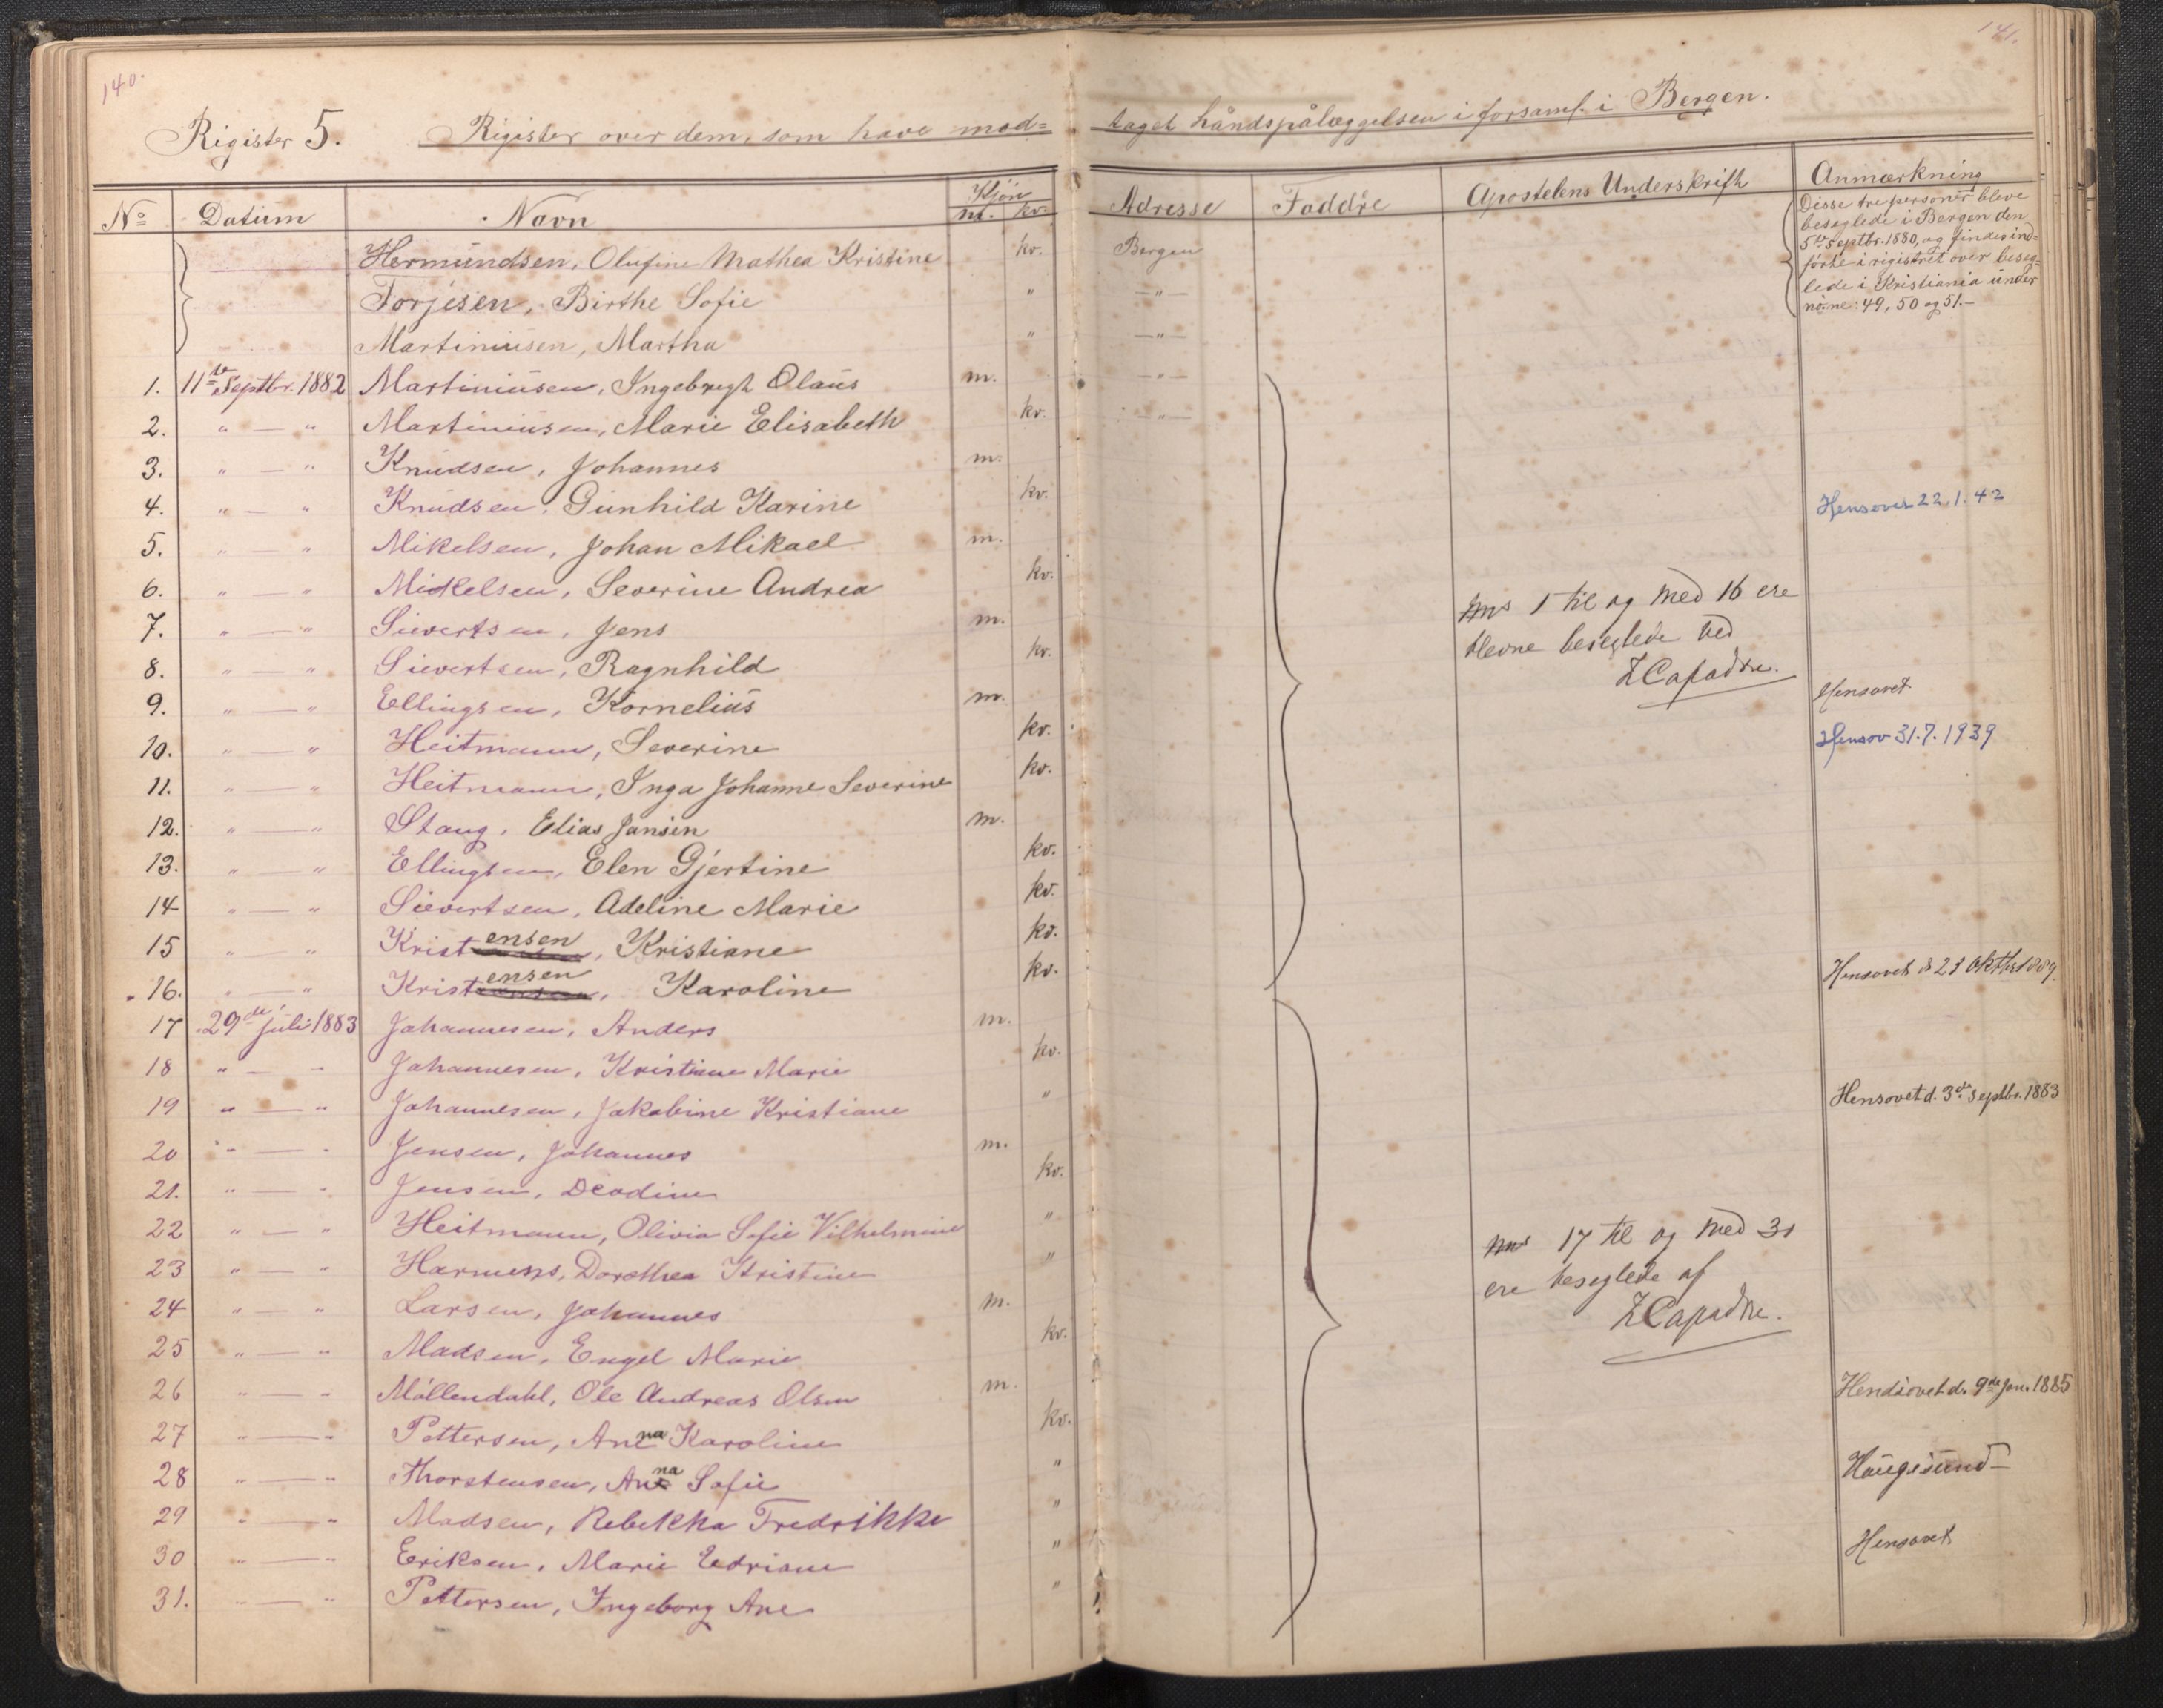 140.
141.
Rigister 5. Rigister over dem, som have mod= taget håndspålæggelsen i forsaml. i Bergen.
No Datum Navn Kjøn m. kv. Adresse Faddre Apostelens Underskrift Anmærkning
Hermundsen, Olufine Mathea Kristine kv. Bergen
Torjesen, Birthe Sofie " — " —
Martiniusen, Martha " — " —
Disse tre personer bleve
beseglede i Bergen den
5te Septbr. 1880, og findes ind=
førte i rigistret over beseg=
lede i Kristiania under
no.ne: 49, 50 og 51.—
1. 11te Septbr. 1882 Martiniusen, Ingebregt Olaus m. — " —
2. " — " Martiniusen, Marie Elisabeth kv. — " —
3. " — " Knudsen, Johannes m.
4. " — " Knudsen, Gunhild Karine kv. Hensovet 22.1.42
5. " — " Mikelsen, Johan Mikael m.
6. " — " Mickelsen, Severine Andrea kv.
7. " — " Sievertsen, Jens m.
8. " — " Sievertsen, Ragnhild kv.
9. " — " Ellingsen, Kornelius m. Hensovet
10. " — " Heitmann, Severine kv. Hensov 31.7.1939
11. " — " Heitmann, Inga Johanne Severine kv.
12. " — " Stang, Elias Jansen m.
13. " — " Ellingsen, Elen Gjertine kv.
14 " — " Sievertsen, Adeline Marie kv.
15 " — " Kristensen, Kristiane kv.
16. " — " Kristensen, Karoline kv. Hensovet d 23 Oktbr 1889.
1 til og med 16 ere
blevne beseglede ved
17 29de juli 1883 Johannesen, Anders m.
18 " — " Johannesen, Kristiane Marie kv.
19 " — " Johannesen, Jakobine Kristiane " Hensovet d. 3de Septbr. 1883
20 " — " Jensen, Johannes m.
21. " — " Jensen, Deodine kv.
22 " — " Heitmann, Olivia Sofie Vilhelmine "
23 " — " Harmens, Dorothea Kristine "
24 " — " Larsen, Johannes m.
25 " — " Madsen, Engel Marie kv.
26 " — " Möllendahl, Ole Andreas Olsen m. Hendsovet d. 9de Jan. 1885
27 " — " Pettersen, Anna Karoline kv.
28 " — " Thorstensen, Anna Sofie " Haugesund
29 " — " Madsen, Rebekka Fredrikke "
30 " — " Eriksen, Marie Edriane " Hensovet
31. " — " Pettersen, Ingeborg Ane "
17 til og med 31
ere beseglede af